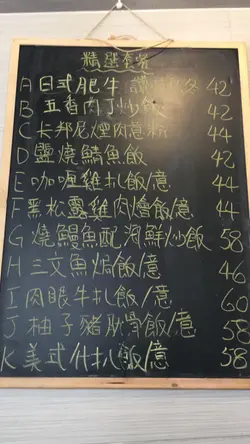 精選套餐
A 日式肥牛 烏冬 42
B 五香肉丁炒飯 42
C 卡邦尼煙肉意粉 44
D 鹽燒鯖魚飯 42
E 咖喱雞扒飯/意 44
F 黑松露雞肉燴飯/意 44
G 燒鰻魚配海鮮炒飯 58
H 三文魚焗飯/意 46
I 肉眼牛扒飯/意 60
J 柚子豬肋骨飯/意 58
K 美式 扒飯/意 58